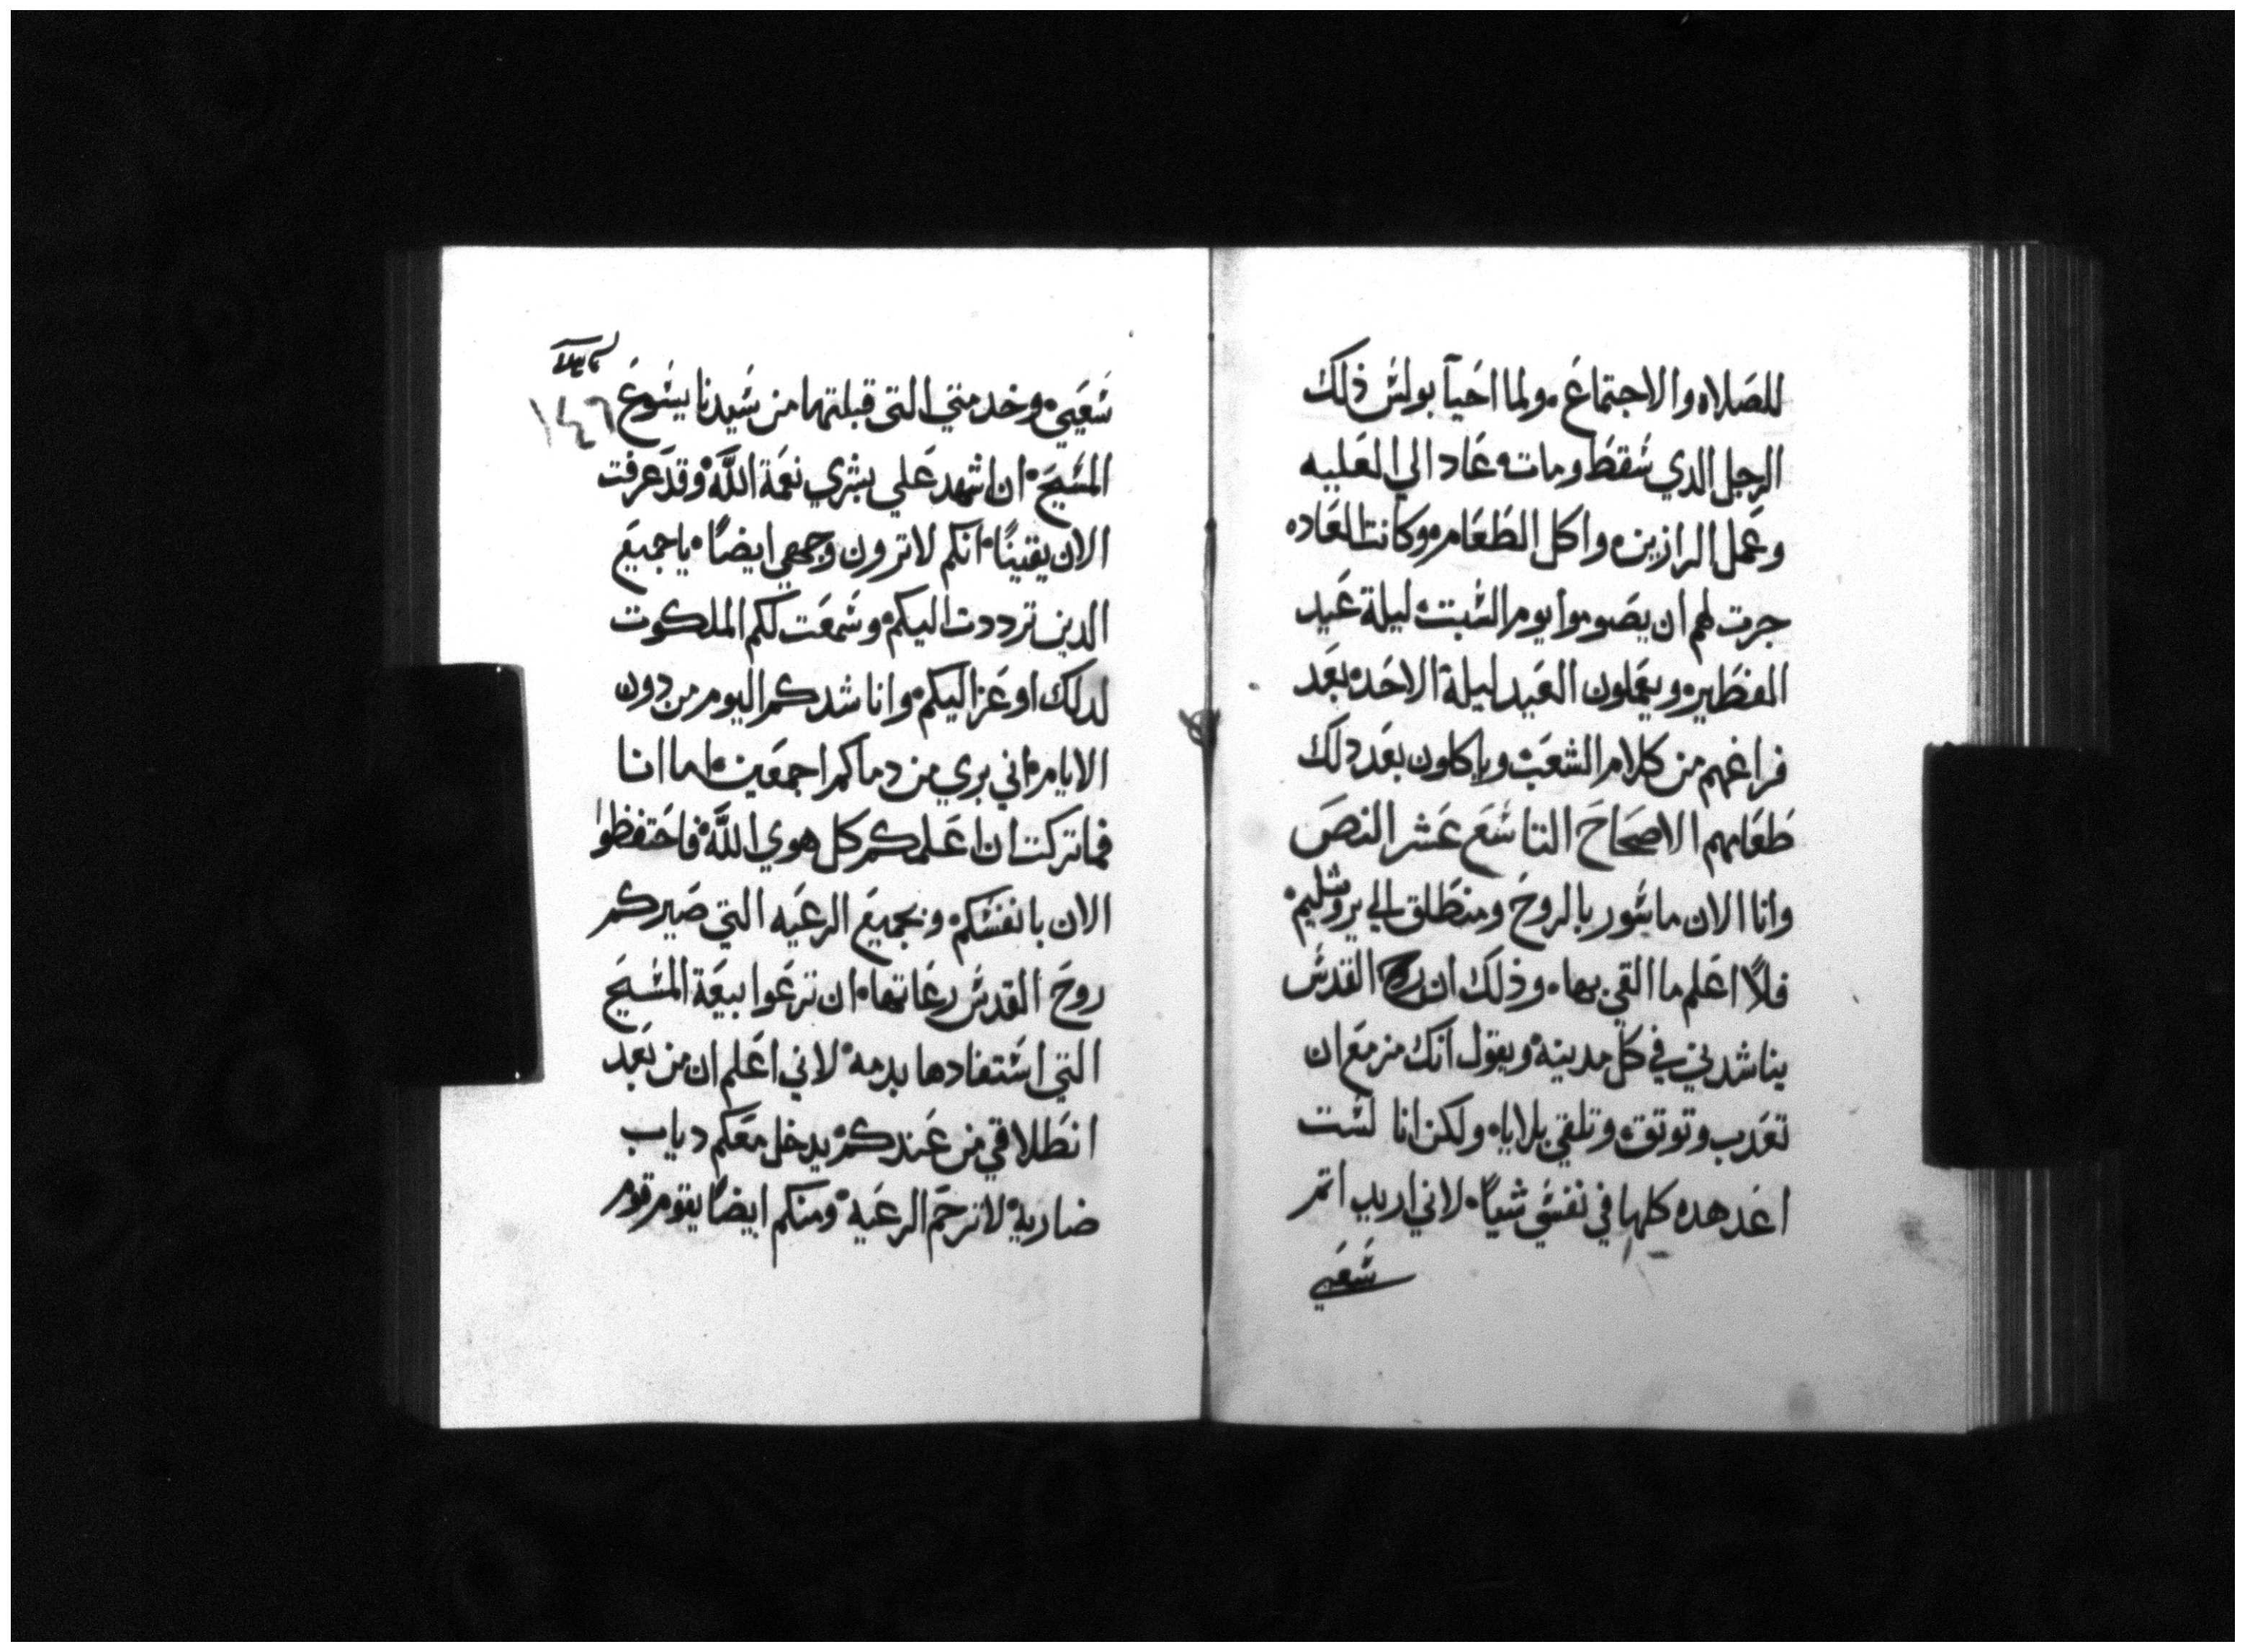 للصلاه والاجتماع ولما احيآ بولس ذلك
الرجل الدي سقط ومات عاد الي العليه
وعمل الرازين واكل الطعام وكانت العاده
جرت لهم ان يصوموا يوم السبت ليلة عيد
الفطير ويعملون العيد ليلة الاحد بعد
فراغهم من كلام الشعب وياكلون بعد دلك
طعامهم الاصحاح التاسع عشر النص
وانا الان ماسور بالروح ومنطلق الي يروشليم
فلا اعلم ما القي بها وذلك ان روح القدس
يناشدني في كل مدينة ويقول انك مزمع ان
تعدب وتوتق وتلقي بلايا ولكن انا لست
اعد هده كلها في نفسي شياً لاني اريد اتم
سعيي
سعيي وخدمتي التى قبلتها من سيدنا يسوع
المسيح ان اشهد علي بشري نعمة اللَّه وقد عرفت
الان يقيناً انكم لا ترون وجهي ايضاً يا جميع
الدين ترددت اليكم وسمعت لكم الملكوت
لدلك اوعز اليكم وانا شدكم اليوم من دون
الايام اني بري من دماكم اجمعين لما انا
فما تركت ان اعلمكم كل هوي اللَّه فاحتفظوا
الان بانفسكم وبجميع الرعيه التي صيركم
روح القدس رعاتها ان ترعوا بيعة المسيح
التي استفادها بدمه لاني اعلم ان من بعد
انطلاقي من عندكم يدخل معكم دياب
ضارية لا ترحم الرعية ومنكم ايضاً يقوم قوم
١٤٦